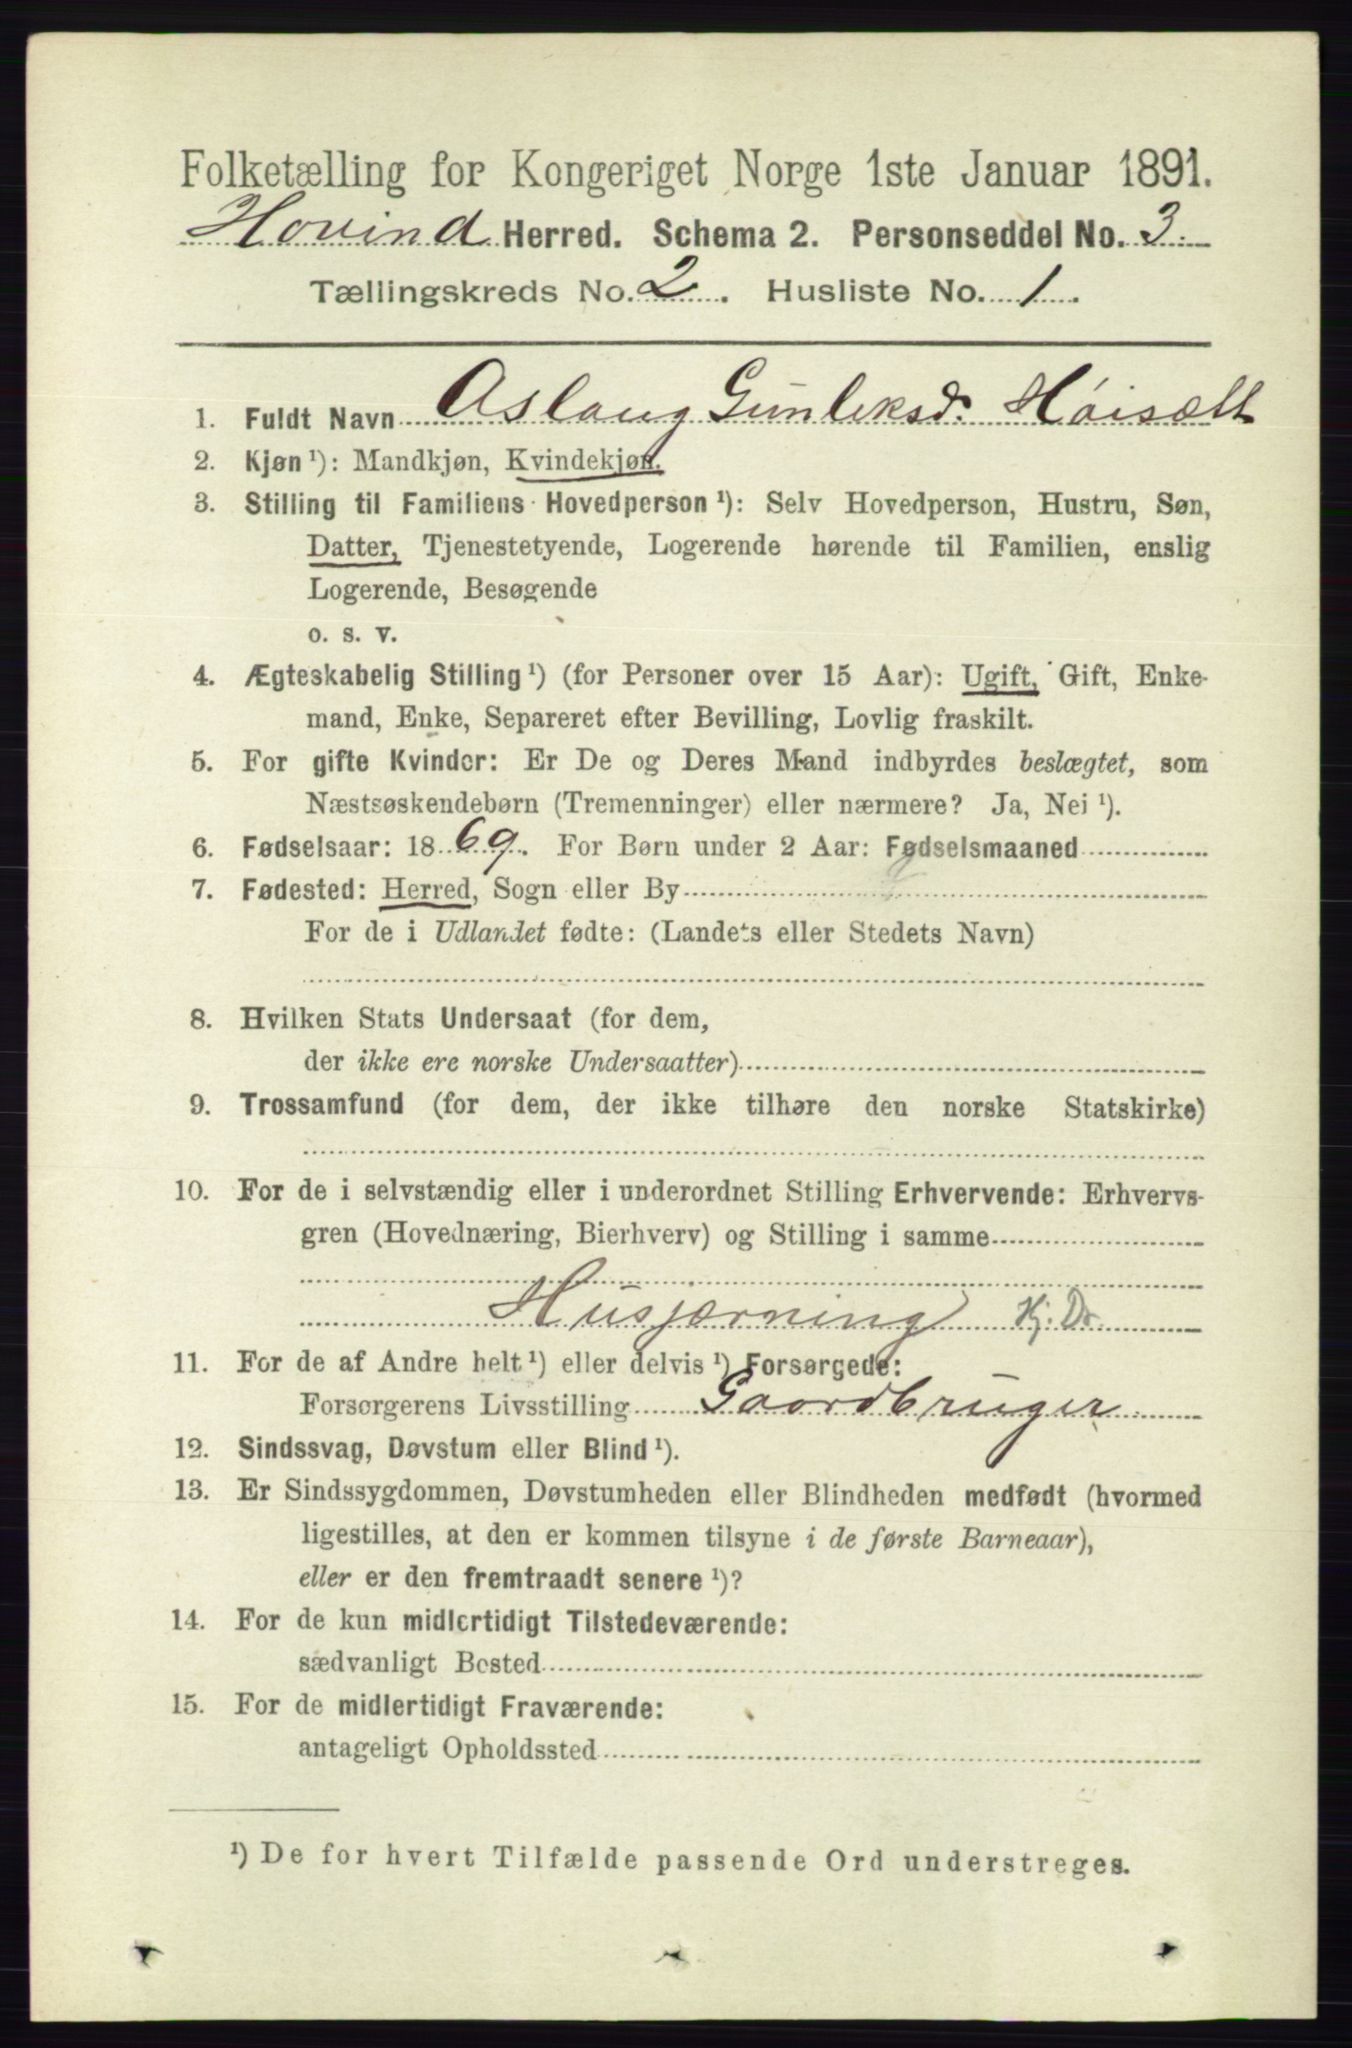 Folketælling for Kongeriget Norge 1ste Januar 1891.
Hovind Herred. Schema 2. Personseddel No. 3.
Tællingskreds No. 2. Husliste No. 1.
1. Fuldt Navn Aslaug Gunleksd. Høisælt
2. Kjøn ¹): Mandkjøn, Kvindekjøn.
3. Stilling til Familiens Hovedperson ¹): Selv Hovedperson, Hustru, Søn,
Datter, Tjenestetyende, Logerende hørende til Familien, enslig
Logerende, Besøgende
o. s. v.
4. Ægteskabelig Stilling ¹) (for Personer over 15 Aar): Ugift, Gift, Enke-
mand, Enke, Separeret efter Bevilling, Lovlig fraskilt.
5. For gifte Kvinder: Er De og Deres Mand indbyrdes beslægtet, som
Næstsøskendebørn (Tremenninger) eller nærmere? Ja, Nei ¹).
6. Fødselsaar: 1869. For Børn under 2 Aar: Fødselsmaaned
7. Fødested: Herred, Sogn eller By
For de i Udlandet fødte: (Landets eller Stedets Navn)
8. Hvilken Stats Undersaat (for dem,
der ikke ere norske Undersaatter)
9. Trossamfund (for dem, der ikke tilhøre den norske Statskirke)
10. For de i selvstændig eller i underordnet Stilling Erhvervende: Erhvervs-
gren (Hovednæring, Bierhverv) og Stilling i samme
Husjærning Hj. Dr.
11. For de af Andre helt ¹) eller delvis ¹) Forsørgede:
Forsørgerens Livsstilling Gaardbruger
12. Sindssvag, Døvstum eller Blind ¹).
13. Er Sindssygdommen, Døvstumheden eller Blindheden medfødt (hvormed
ligestilles, at den er kommen tilsyne i de første Barneaar),
eller er den fremtraadt senere ¹)?
14. For de kun midlertidigt Tilstedeværende:
sædvanligt Bosted
15. For de midlertidigt Fraværende:
antageligt Opholdssted
¹) De for hvert Tilfælde passende Ord understreges.